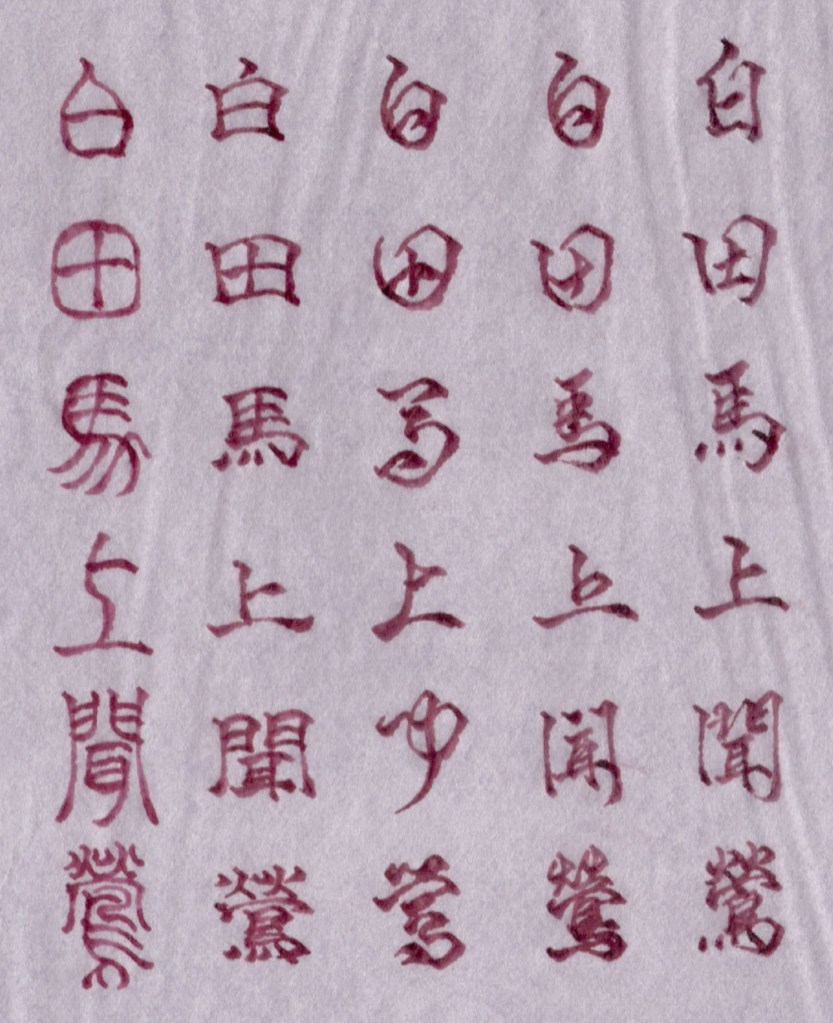 白白白白白
田田田田田
馬馬馬馬馬
上上上上上
聞聞聞聞聞
鶯鶯鶯鶯鶯